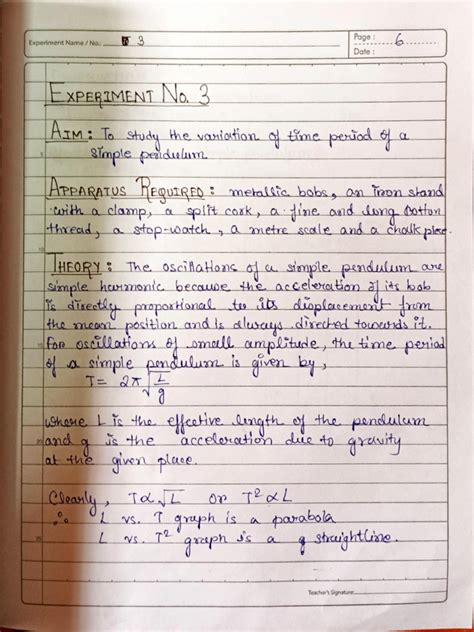 Experiment Name / No. 3
Page : 6
Date :
EXPERIMENT No. 3
AIM : To study the variation of time period of a
simple pendulum
APPARATUS REQUIRED : metallic bobs, an iron stand
with a clamp, a split cork, a fine and long cotton
thread, a stop-watch, a metre scale and a chalk piece.
THEORY : The oscillations of a simple pendulum are
simple harmonic because the acceleration of its bob
is directly proportional to its displacement from
the mean position and is always directed towards it.
For oscillations of small amplitude, the time period
of a simple pendulum is given by,
T = 2π√L/g
where L is the effective length of the pendulum
and g is the acceleration due to gravity
at the given place.
Clearly, T∝√L or T²∝L
∴ L vs. T graph is a parabola
L vs. T² graph is a straightline.
Teacher's Signature: